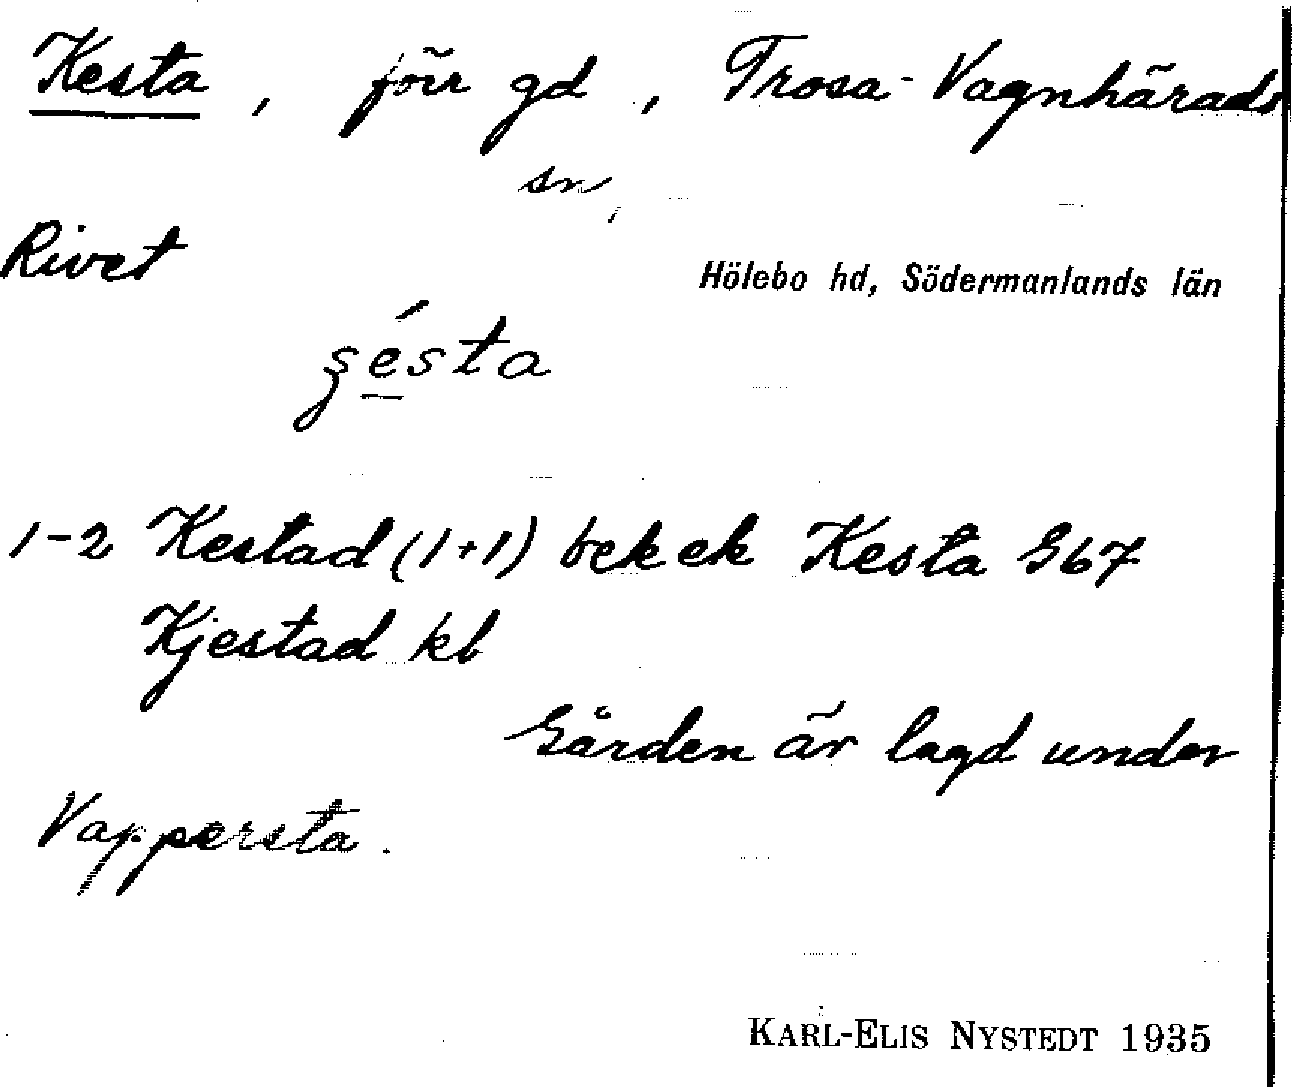 Kesta, förr gd, Trosa-Vagnhärads
sn,
Rivet
Hölebo hd, Södermanlands län
ʂésta
1-2 Kestad (1+1) bek ek Kesta G67
Kjestad kb
Gården är lagd under
Vappersta.
KARL-ELIS NYSTEDT 1935